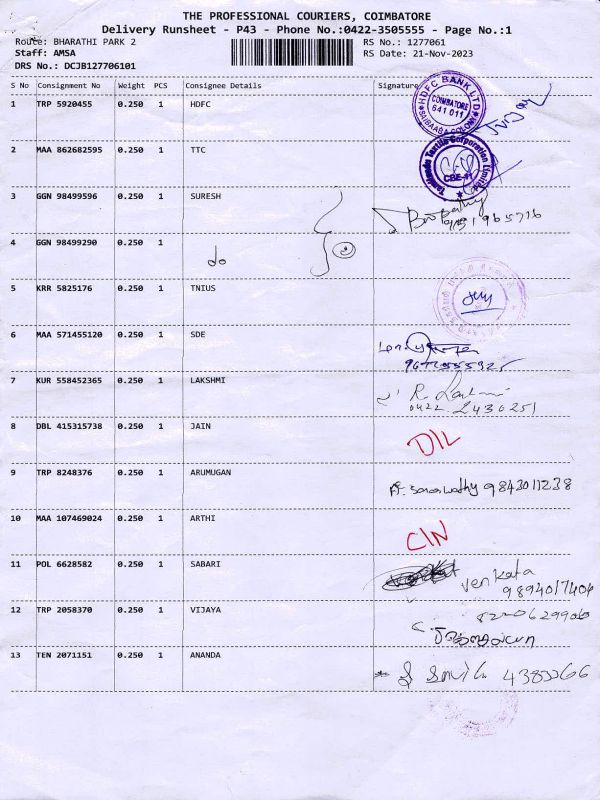 THE PROFESSIONAL COURIERS, COIMBATORE
Delivery Runsheet - P43 - Phone No.:0422-3505555 - Page No.:1
Route: BHARATHI PARK 2 RS No.: 1277061
Staff: AMSA RS Date: 21-Nov-2023
DRS No.: DCJB127706101
S No Consignment No Weight PCS Consignee Details Signature
1 TRP 5920455 0.250 1 HDFC
HDFC BANK LTD
COIMBATORE
641 011
2 MAA 862682595 0.250 1 TTC
Tamilnadu Textile Corporation Limited
CBE-11
3 GGN 98499596 0.250 1 SURESH
4 GGN 98499290 0.250 1
do
5 KRR 5825176 0.250 1 TNIUS
6 MAA 571455120 0.250 1 SDE
7 KUR 558452365 0.250 1 LAKSHMI
0422 2436251
8 DBL 415315738 0.250 1 JAIN
D/L
9 TRP 8248376 0.250 1 ARUMUGAN
9843011238
10 MAA 107469024 0.250 1 ARTHI
C/N
11 POL 6628582 0.250 1 SABARI
Venkata
9894017404
12 TRP 2058370 0.250 1 VIJAYA
13 TEN 2071151 0.250 1 ANANDA